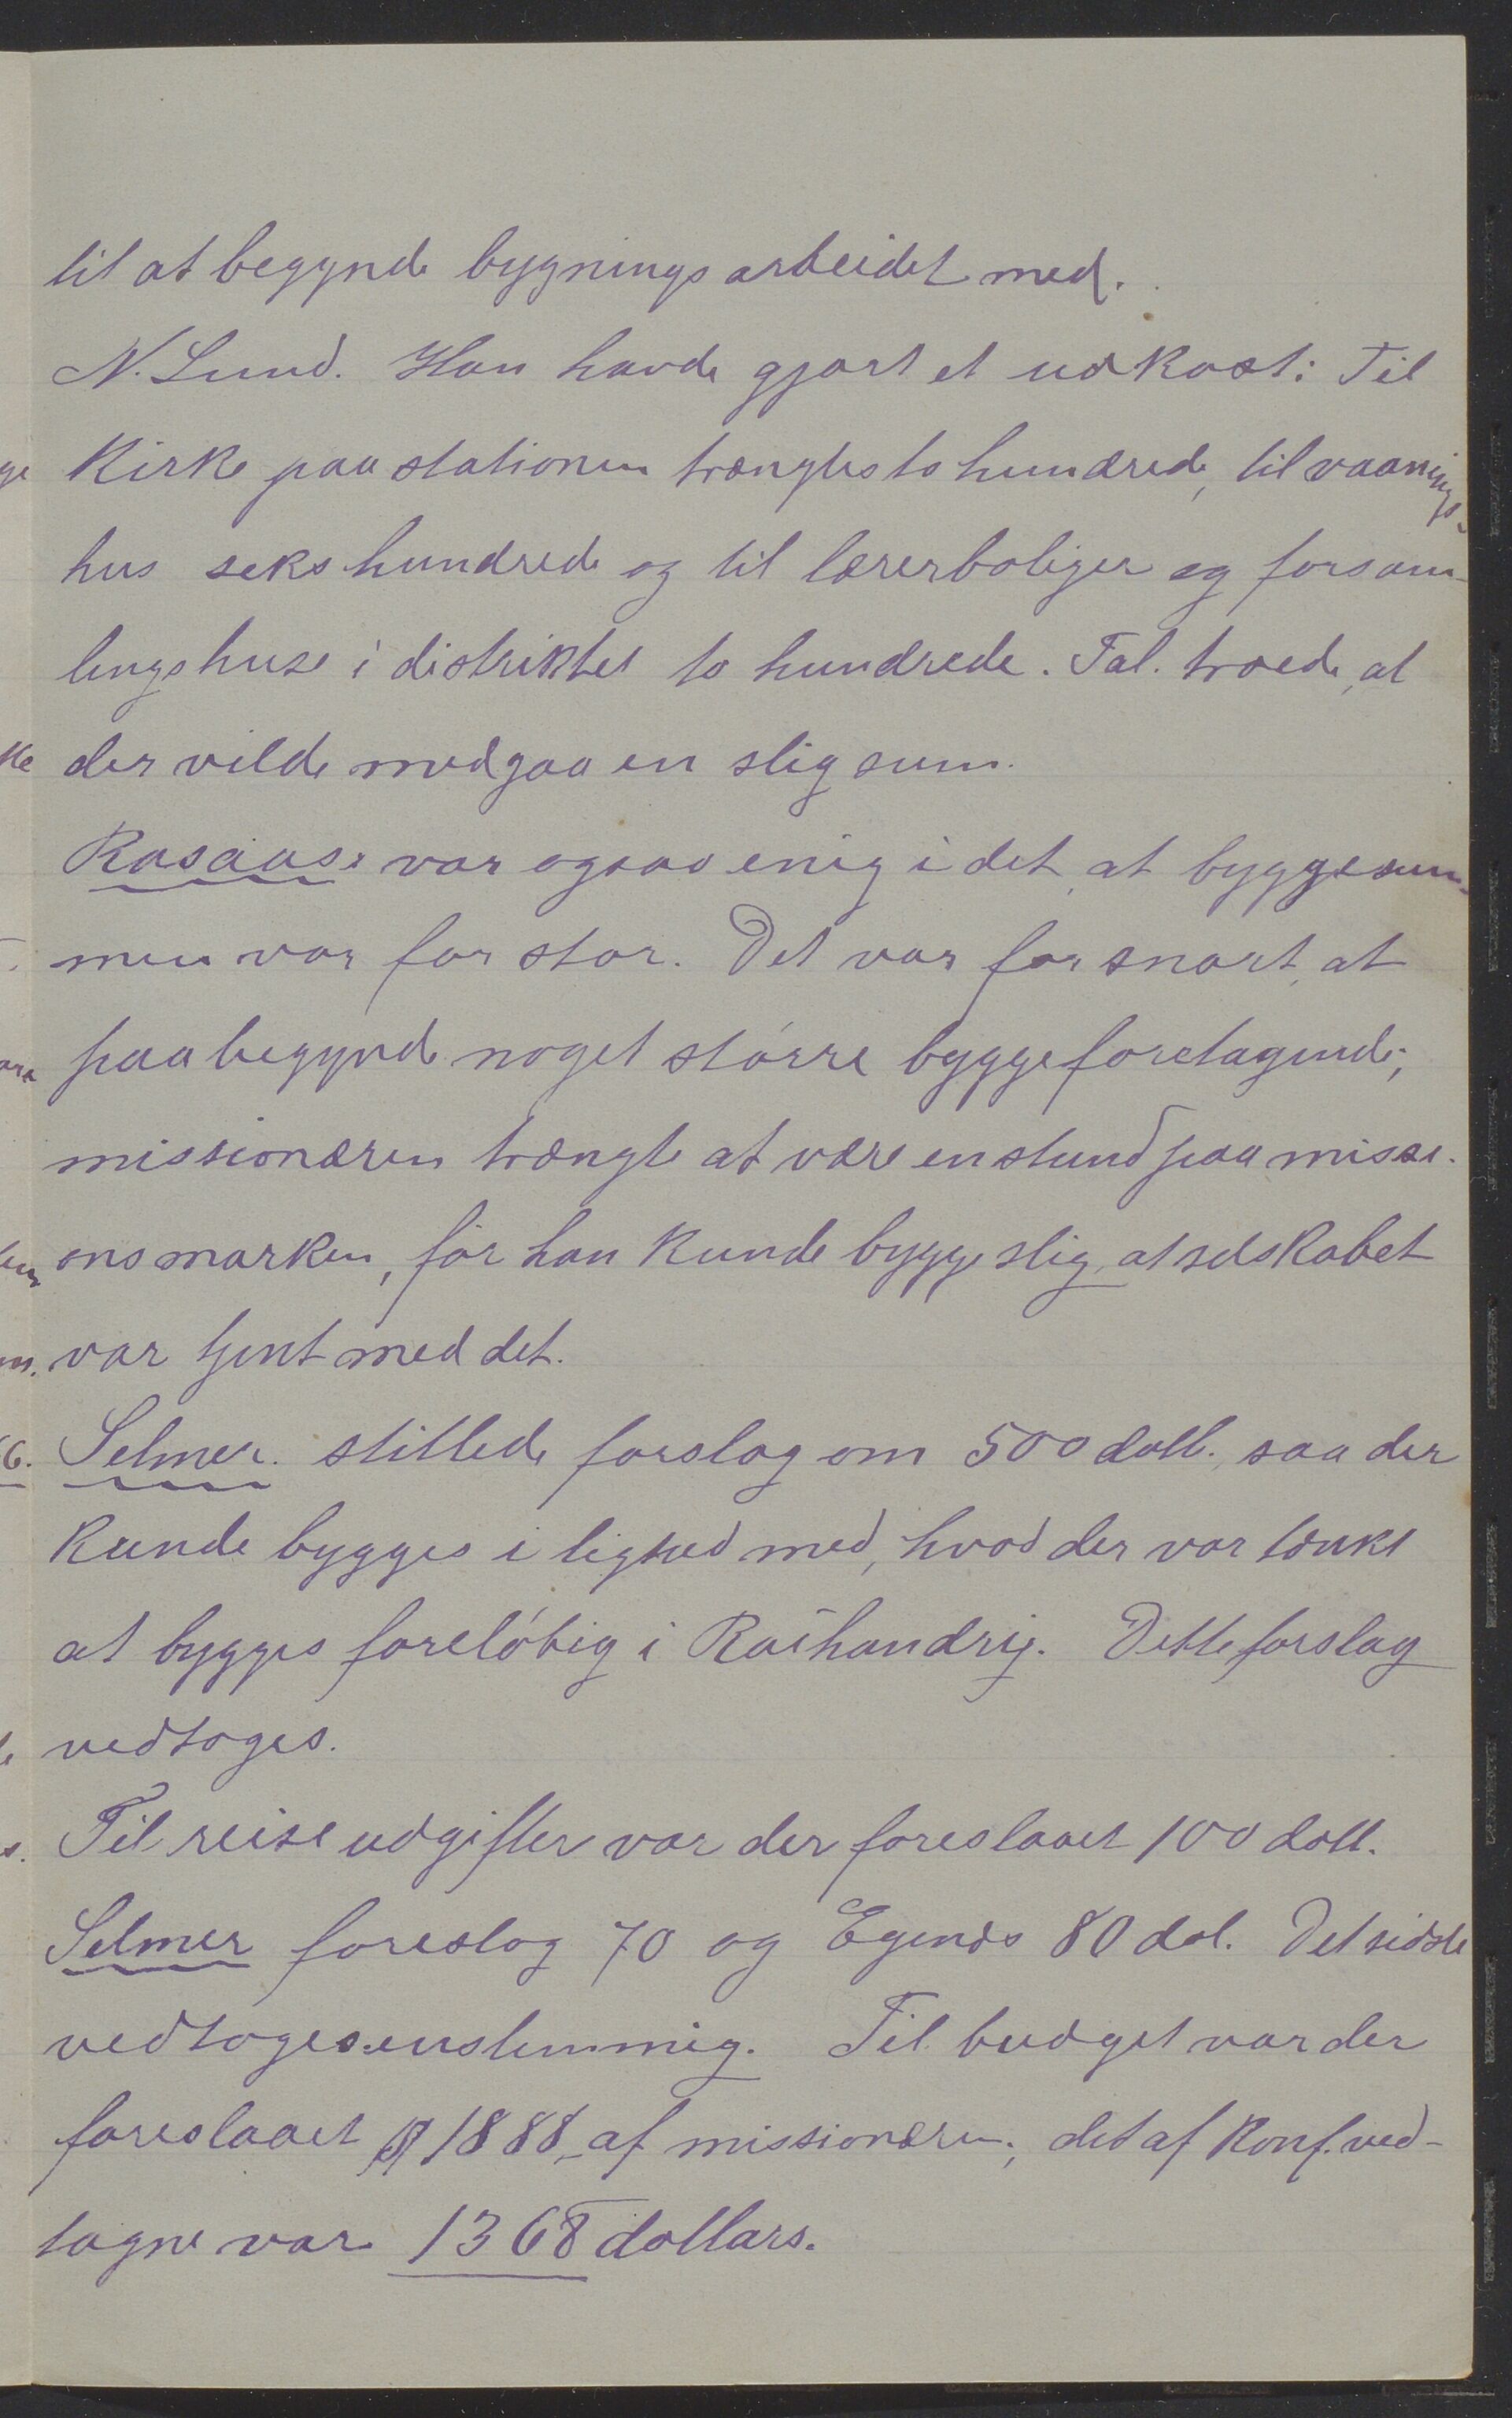 til at begynde bygningsarbeidet med.
N. Lund. Han havde gjort et udkast: Til
Kirke paa stationen trængtes to hundrede, til vaanings-
hus sekshundrede og til lærerboliger og forsam-
lingshuse i distriktet to hundrede. Tal. troede, at
der vilde medgaa en slig sum.
Rasaas: var ogsaa enig i det, at byggesum-
men var for stor. Det var for snart, at
paabegynde noget større byggeforetagende;
missionæren trængte at være en stund paa missi-
onsmarken, før han kunde bygge slig, at selskabet
var tjent med det.
Selmer. stillede forslag om 500 doll., saa der
kunde bygges i lighed med, hvad der var tænkt
at bygges foreløbig i Raihandrig. Dette forslag
vedtoges.
Til reiseudgifter var der foreslaaet 100 doll.
Selmer foreslog 70 og Egenæs 80 dol. Det sidste
vedtoges enstemmig. Til budget var der
foreslaaet $ 1888,- af missionæren; det af Konf. ved-
tagne var 1368 dollars.